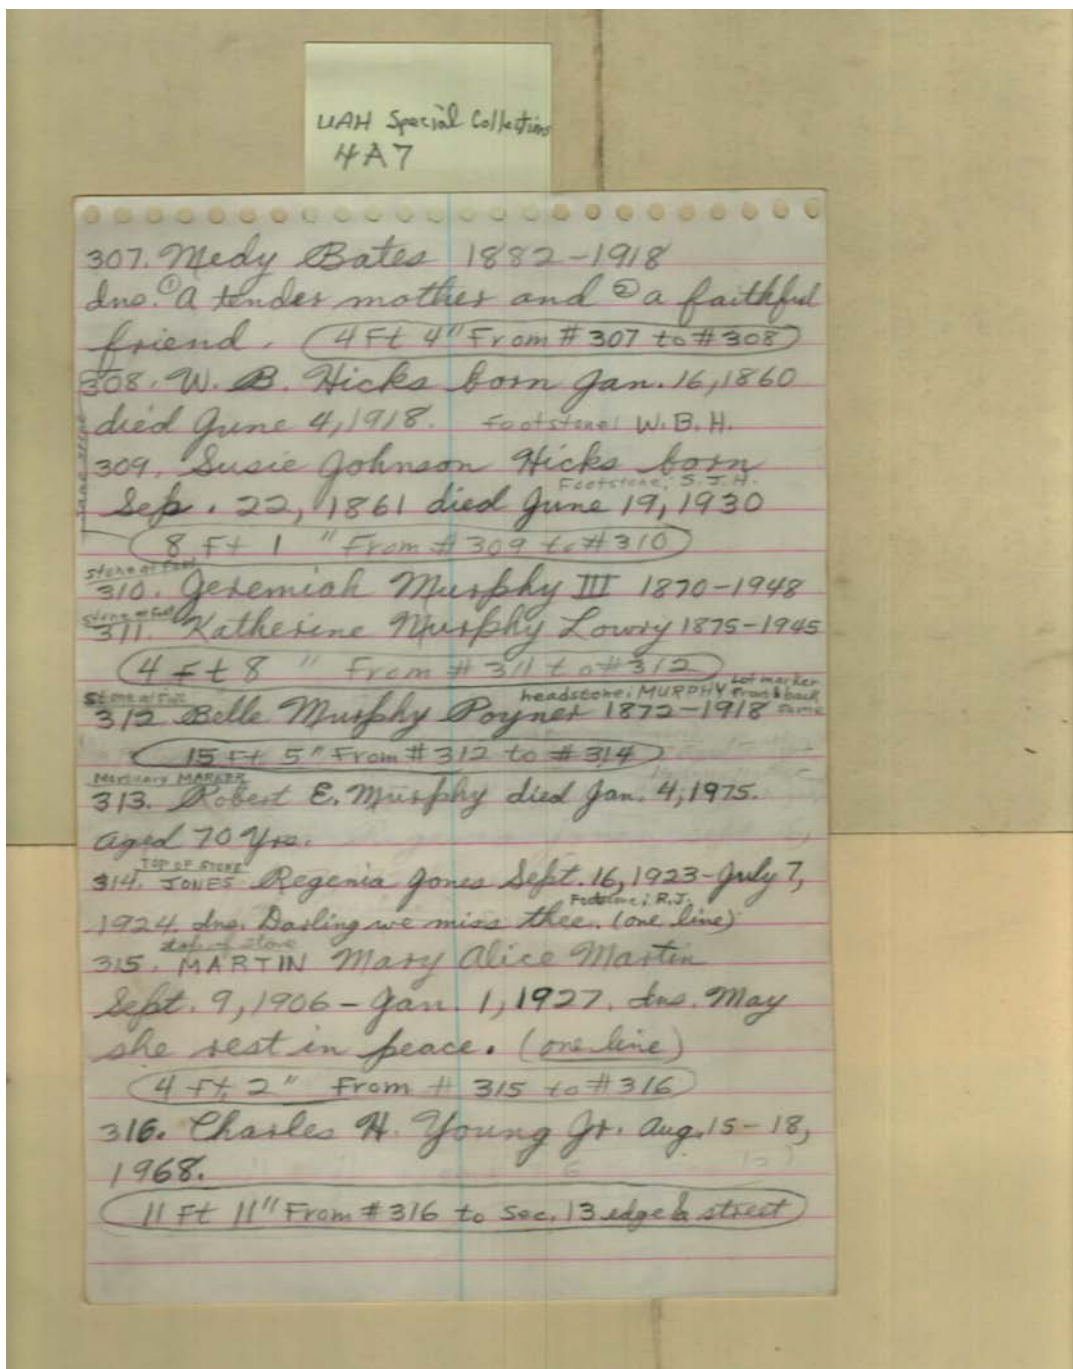 UAH Special Collections
4A7
307. Medy Bates 1882-1918
Ins. ① A tender mother and ② a faithful
friend. 4 Ft 4" From #307 to #308
308. W. B. Hicks born Jan. 16, 1860
died June 4, 1918. Footstone: W.B.H.
same stone
309. Susie Johnson Hicks born
Footstone: S.J.H.
Sep. 22, 1861 died June 19, 1930
8 Ft 1" From #309 to #310
stone at foot
310. Jeremiah Murphy III 1870-1948
stone at foot
311. Katherine Murphy Lowry 1875-1945
4 Ft 8" From #311 to #312
Stone at foot headstone: MURPHY Lot marker front & back same
312 Belle Murphy Poyner 1872-1918
15 Ft 5" From #312 to #314
Mortuary MARKER
313. Robert E. Murphy died Jan. 4, 1975.
aged 70 Yrs.
TOP OF STONE
314. JONES Regenia Jones Sept. 16, 1923-July 7,
Footstone: R.J.
1924. Ins. Darling we miss thee. (one line)
top of stone
315. MARTIN Mary Alice Martin
Sept. 9, 1906 - Jan. 1, 1927. Ins. May
she rest in peace. (one line)
4 Ft, 2" From #315 to #316
316. Charles H. Young Jr. Aug. 15-18,
1968.
11 Ft 11" From #316 to Sec. 13 edge & street